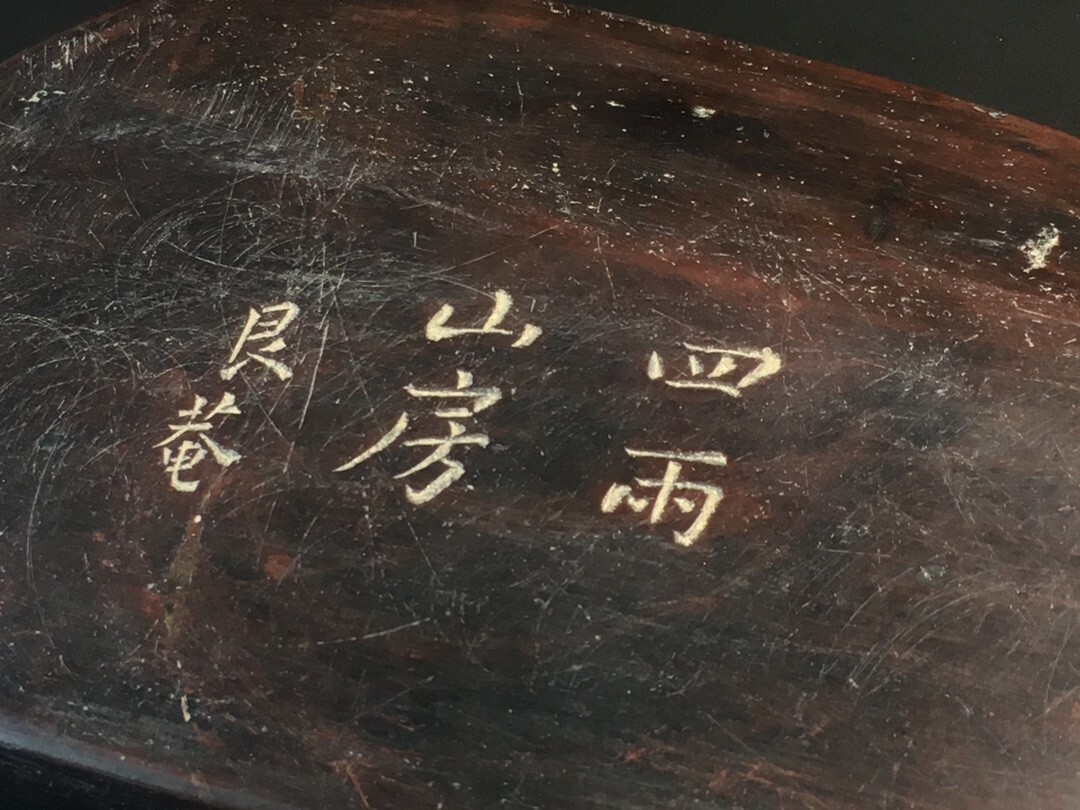 四雨
山房
艮菴